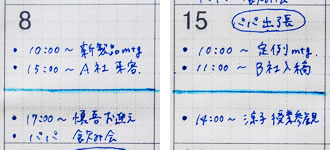 8
・10:00〜 新製品mtg.
・15:00〜 A社来客.
・17:00〜 慎吾お迎え
・パパ 飲み会
15
パパ出張
・10:00〜 定例mtg.
・11:00〜 B社入稿
・14:00〜 涼子 授業参観